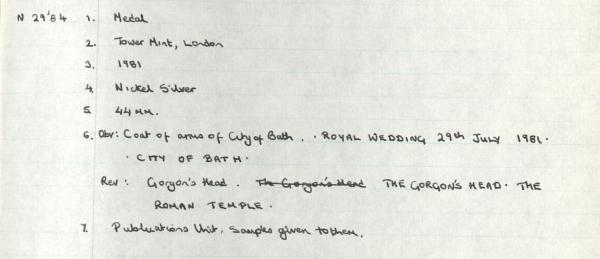 N 29'84 1. Medal
2. Tower Mint, London
3. 1981
4. Nickel Silver
5. 44 mm.
6. Obv: Coat of arms of City of Bath. · ROYAL WEDDING 29th JULY 1981 ·
· CITY OF BATH ·
Rev: Gorgon's Head. The Gorgon's Head THE GORGON'S HEAD · THE
ROMAN TEMPLE ·
7. Publications Unit, Samples given to them.